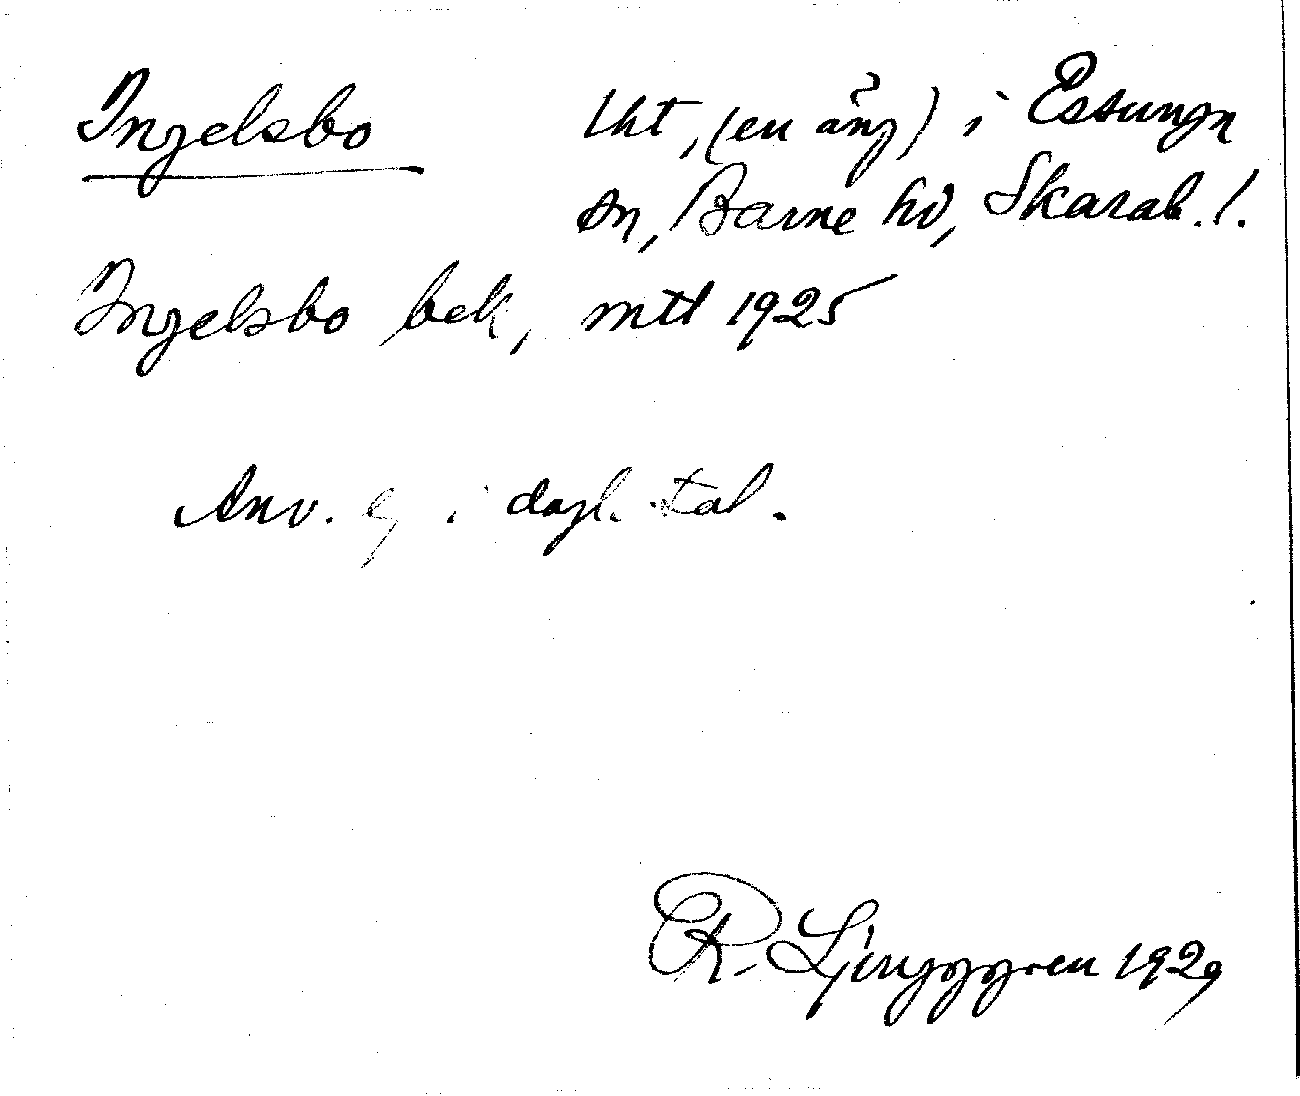 Ingelsbo lht, (en äng) i Essunga
sn, Barne hd, Skarab. l.
Ingelsbo bek, mtl 1925
Anv. ej i dagl. tal.
R. Ljunggren 1929